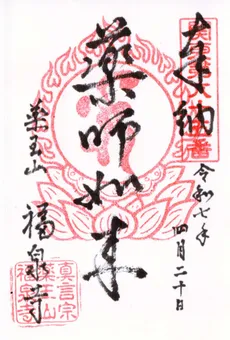 奉納
令和七年
四月二十日
薬師如来
薬王山
福泉寺
真言宗
薬王山
福泉寺